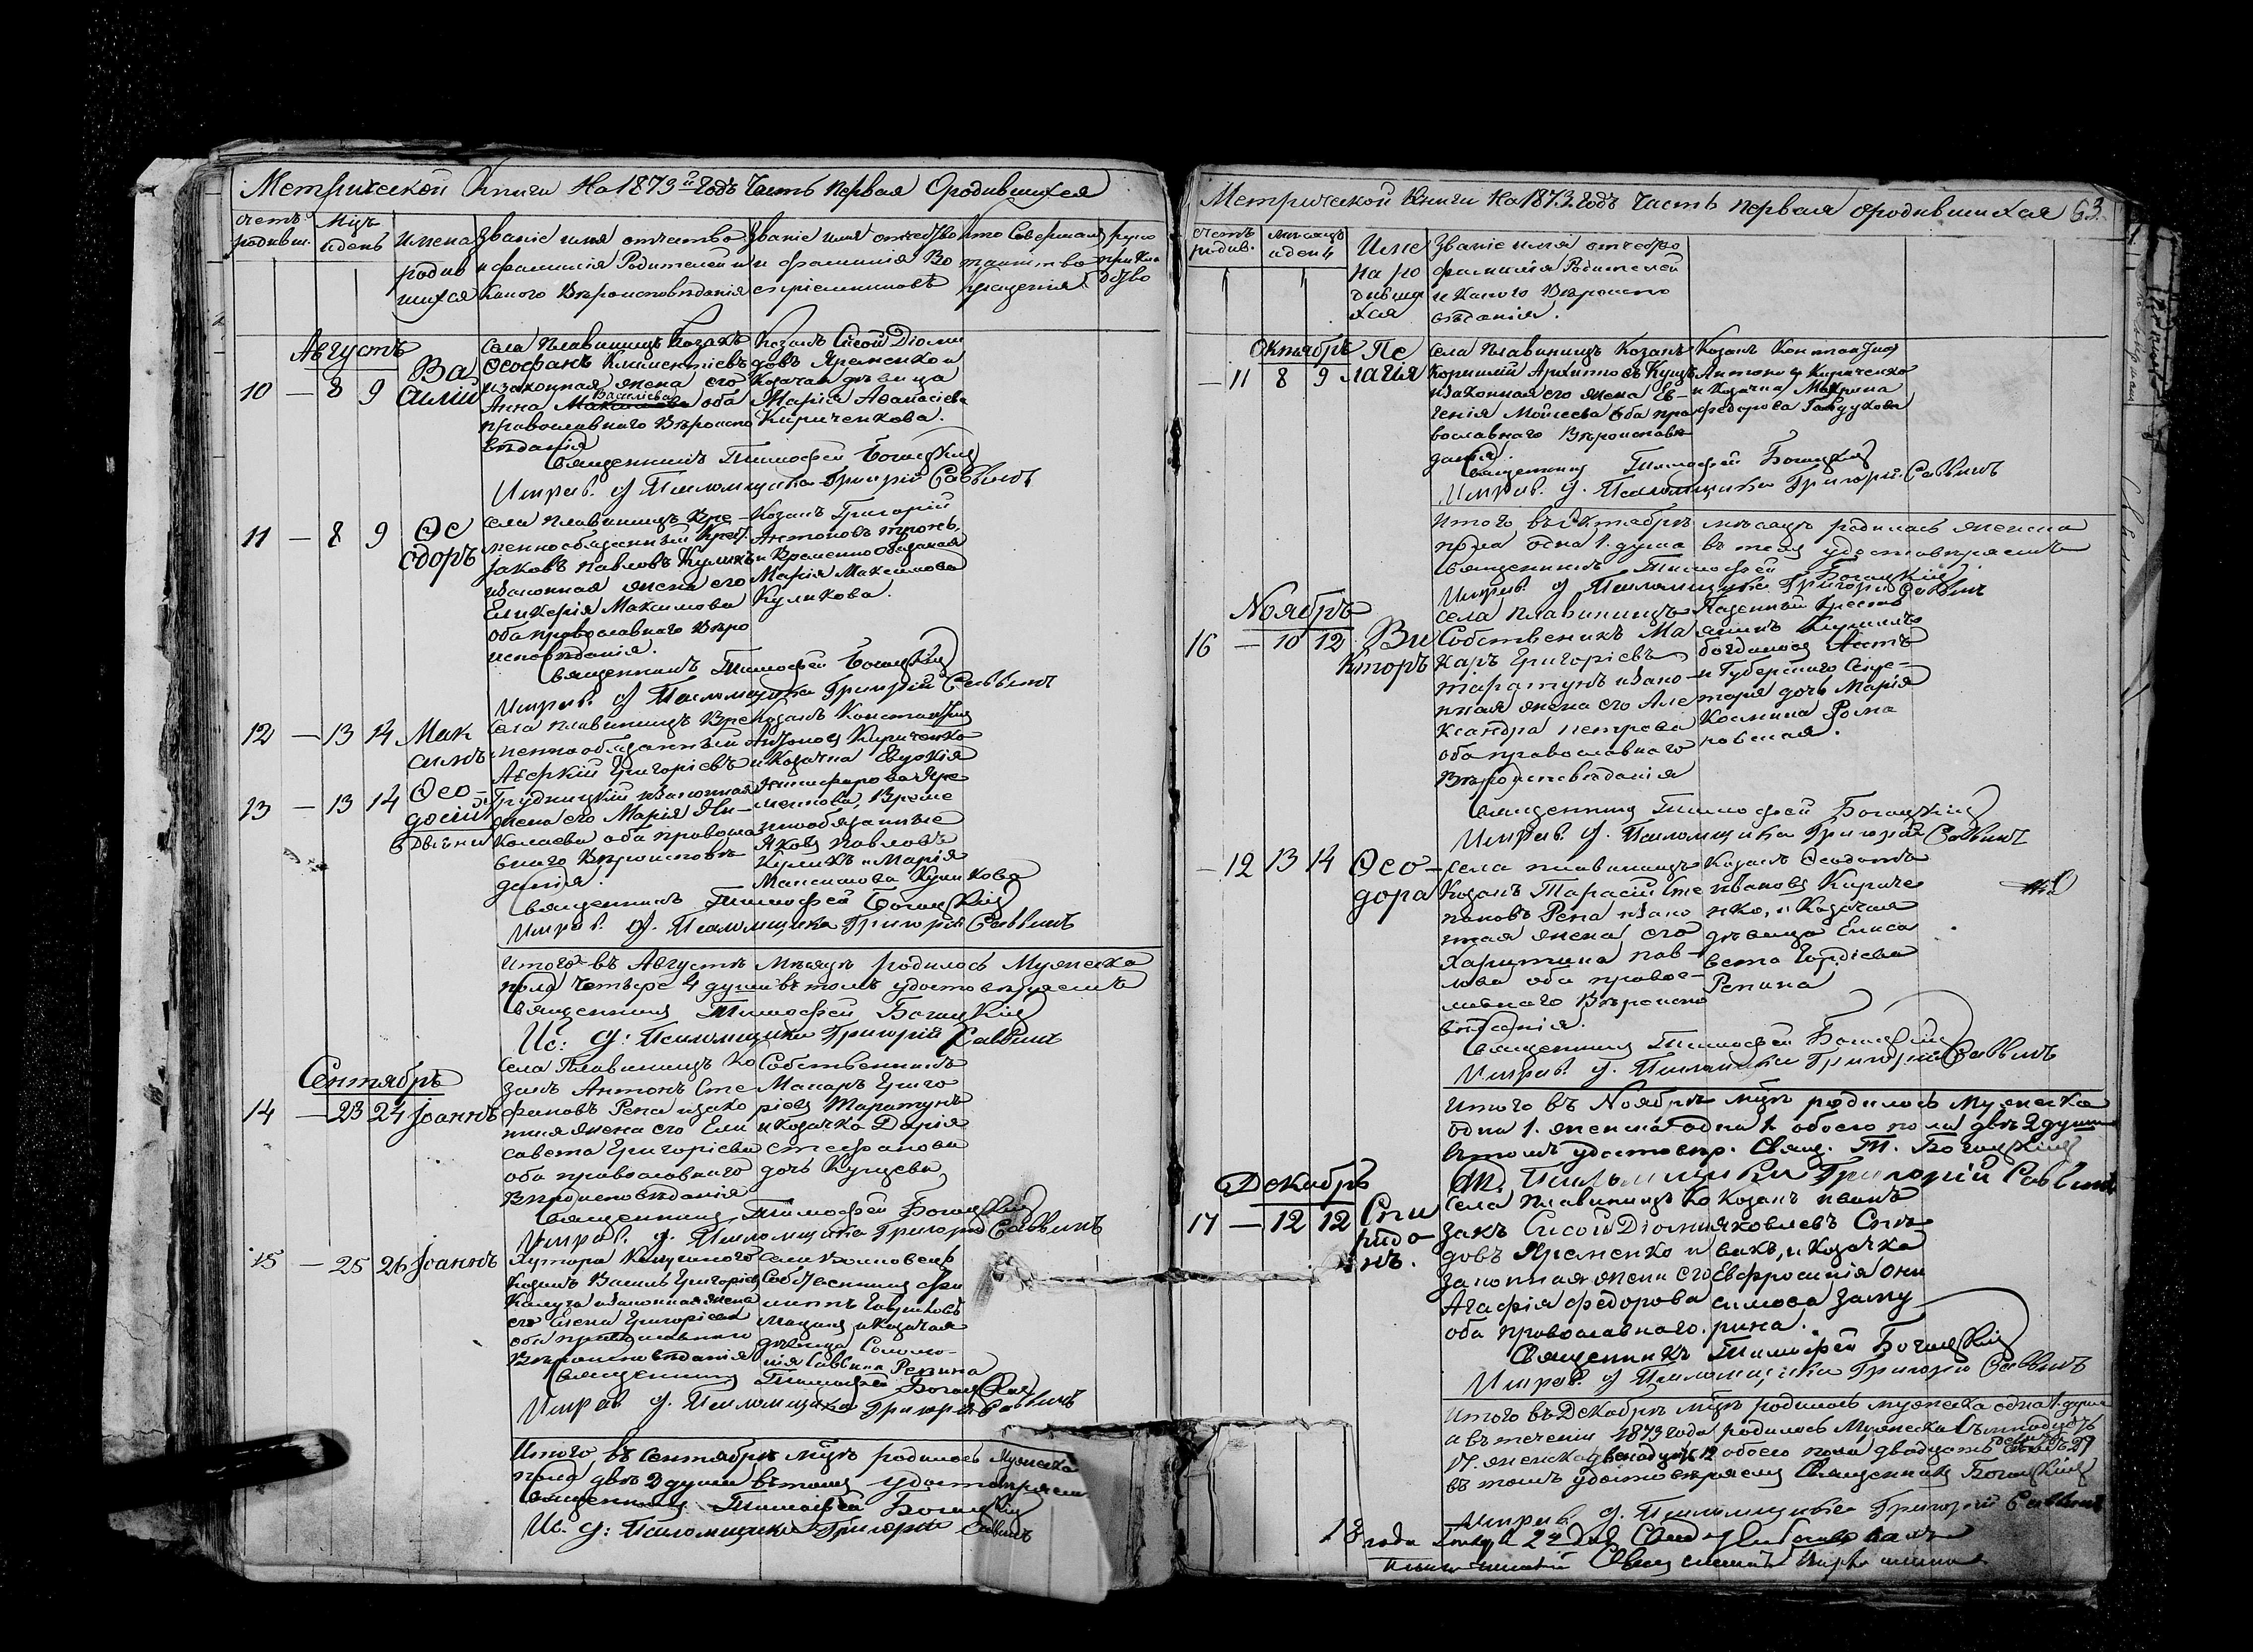 Метрической Книги На 1873й Годъ Часть первая О родившихся
счетъ родивш.
Мцъ и день
имена родив шихся
Званіе имя отчество и фамилія Родителей и Какого Вѣроисповѣданія
Званіе имя отчество и фамилія Во спріемниковъ
кто Совершалъ таинство крещенія
руко прикла дство
Августъ
10 — 8 9 Ва силій
села Плавинищъ Козакъ
Ѳеофанъ Климентіевъ
и законная жена его
Анна Васильева оба
православнаго Вѣроиспо
вѣданія
Козакъ Сысой Діоми
довъ Яременко и
Козачая дѣвица
Марія Аѳанасіева
Кириченкова.
Священникъ Тимофей Богацкій
Исправ. д. Псаломщика Григорій Саввичъ
11 — 8 9 Ѳе одоръ
села Плавинищъ Вре-
менно обязанный Крест.
Іаковъ Павловъ Куликъ
и законная жена его
Гликерія Максимова
оба православнаго Вѣро
исповѣданія.
Козакъ Григорій
Антоновъ
и Временно обязаная
Марія Максимова
Куликова.
Священникъ Тимофей Богацкій
Исправ. д. Псаломщика Григорій Саввичъ
12 — 13 14 Мак симъ
13 — 13 14 Ѳео- досій
Двѣйни
села Плавинищъ Вре
менно обязанный
Авер­кій Григоріевъ
Грудницкій и законная
жена его Марія Ни-
колаева оба правосла
внаго Вѣроисповѣ
данія.
Козакъ Константинъ
Антоновъ Кириченко
и Козачка Евдокія
Никифорова Яре
менкова, Време
ннообязанные
Яковъ Павловъ
Куликъ и Марія
Максимова Куликова
Священникъ Тимофей Богацкій
Исправ. д. Псаломщика Григорій Саввичъ
Итого въ Августѣ Мѣсяцѣ родилось Мужеска
пола Четыре 4 души въ томъ удостовѣряемъ
Священникъ Тимофей Богацкій
Ис: д: Псаломщика Григорій Саввичъ
Сентябрь
14 — 23 24 Іоаннъ
села Плавинищъ Ко
закъ Антонъ Сте
фановъ Репа и зако
нная жена его Ели
савета Григоріева
оба православнаго
Вѣроисповѣданія
Собственникъ
Макаръ Григо
ріевъ Таратунъ
и козачка Дарія
стефанова
дочь Куцева
Священникъ Тимофей Богацкій
Исправ. д. Псаломщика Григорій Саввичъ
15 — 25 26 Іоаннъ
Хутора Калужнаго
Козакъ Василь Григоріевъ
Калуга и законная жена
его Елена Григоріева
оба православнаго
Вѣроисповѣданія
Собственникъ
и Козачая
дѣвица Соломо-
нія Саввина Репина
Священникъ Тимофей Богацкій
Исправ. д. Псаломщика Григорій Саввичъ
Итого въ Сентябрѣ мцѣ родилось Мужеска
пола двѣ 2 души въ томъ удостовѣряемъ
Священникъ Тимофей Богацкій
Ис. д: Псаломщика Григорій Саввичъ
Метрической Книги На 1873. Годъ Часть первая о родившихся 63.
счетъ родив.
мѣсяцъ и день
Име на ро дивши хся
Званіе имя отчество
фамилія Родителей
и Какого Вѣроиспо
вѣданія.
Октябрь
— 11 8 9 Пе лагія
села Плавинищъ Козакъ
Корнилій Архиповъ Куцъ
и законная его жена Ев-
генія Мойсеева оба пра
вославнаго Вѣроисповѣ
данія.
Козакъ Константинъ
Антоновъ Кириченко
и Козачка Макрина
Федорова Гайдукова
Священникъ Тимофей Богацкій
Исправ. д. Псаломщика Григорій Саввичъ
Итого въ Октябрѣ мѣсяцѣ родилась женска
пола одна 1. душа въ томъ удостовѣряемъ
Священникъ Тимофей Богацкій
Исправ. д. Псаломщика Григорій Саввичъ
Ноябрь
16 — 10 12 Ви кторъ
села Плавинищъ
Собственникъ Ма
каръ Григоріевъ
Таратунъ и зако-
нная жена его Але
ксандра петрова
оба православнаго
Вѣроисповѣданія
Казенный Кресть
янинъ
и Губерскаго Секре-
таря дочь Марія
Косьмина Рома
новская.
Священникъ Тимофей Богацкій
Исправ. д. Псаломщика Григорій Саввичъ
— 12 13 14 Ѳео- дора
села плавинищъ
Козакъ Тарасій Сте
пановъ Репа и зако
нная жена его
Харитина пав-
лова оба правос-
лавнаго Вѣроиспо
вѣданія.
Козакъ Ѳеодотъ
Ивановъ Кириче
нко, и Козачая
дѣвица Елиса
вета Гордіева
Репина
Священникъ Тимофей Богацкій
Исправ. д. Псаломщика Григорій Саввичъ
Итого въ Ноябрѣ мцѣ родилось Мужеска
одна 1. женска одна 1. обоего пола двѣ 2 души
въ томъ удостовѣр. Свящ. Т. Богацкій
Псаломщика Григорій Саввичъ
Декабрь
17 — 12 12 Спи ридо нъ.
села Плавинищъ Ко
закъ Сысой Діоми
довъ Яременко и
законная жена его
Агафія Федорова
оба православнаго.
Козакъ иванъ
яковлевъ Спи
вакъ, и Козачка
Евфросинія Они
симова Заму
рина.
Священникъ Тимофей Богацкій
Исправ. д. Псаломщика Григорій Саввичъ
Итого въ Декабрѣ мцѣ родилось мужеска одна 1. душа
а въ теченіи 1873 года родилось Мужеска Семнадцать
17. женска двенадцать 12 обоего пола двадцать девять 29
въ томъ удостовѣряемъ Священникъ Богацкій
Исправ. д. Псаломщика Григорій Саввичъ
18 года